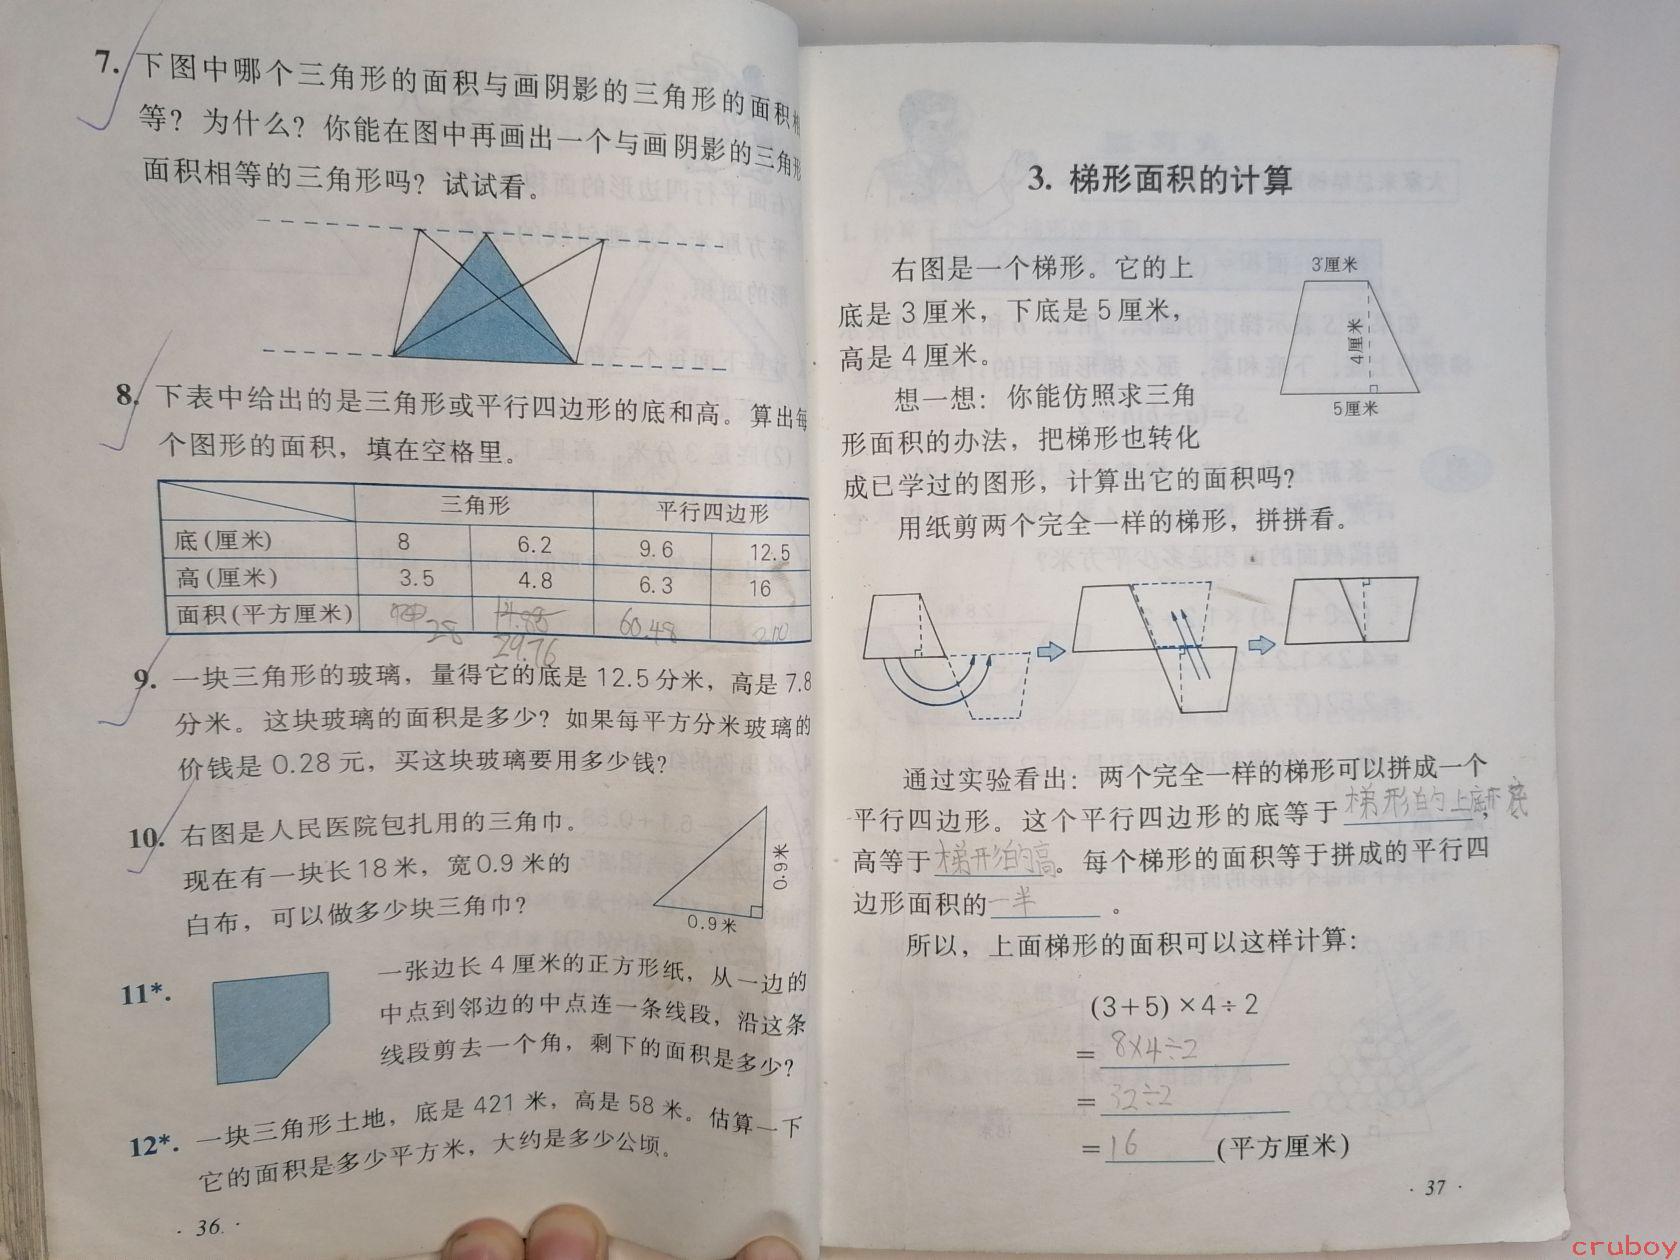 7. 下图中哪个三角形的面积与画阴影的三角形的面积相
等？为什么？你能在图中再画出一个与画阴影的三角形
面积相等的三角形吗？试试看。
8. 下表中给出的是三角形或平行四边形的底和高。算出每
个图形的面积，填在空格里。
三角形 平行四边形
底(厘米) 8 6.2 9.6 12.5
高(厘米) 3.5 4.8 6.3 16
面积(平方厘米) 14.88 60.48
28 29.76
9. 一块三角形的玻璃，量得它的底是12.5分米，高是7.8
分米。这块玻璃的面积是多少？如果每平方分米玻璃的
价钱是0.28元，买这块玻璃要用多少钱？
10. 右图是人民医院包扎用的三角巾。
现在有一块长18米，宽0.9米的
白布，可以做多少块三角巾？
0.9米
0.9米
11*. 一张边长4厘米的正方形纸，从一边的
中点到邻边的中点连一条线段，沿这条
线段剪去一个角，剩下的面积是多少？
12*. 一块三角形土地，底是421米，高是58米。估算一下
它的面积是多少平方米，大约是多少公顷。
· 36 ·
3. 梯形面积的计算
右图是一个梯形。它的上
底是3厘米，下底是5厘米，
高是4厘米。
3厘米
4厘米
5厘米
想一想：你能仿照求三角
形面积的办法，把梯形也转化
成已学过的图形，计算出它的面积吗？
用纸剪两个完全一样的梯形，拼拼看。
通过实验看出：两个完全一样的梯形可以拼成一个
平行四边形。这个平行四边形的底等于梯形的上底下底，
高等于梯形的高。每个梯形的面积等于拼成的平行四
边形面积的一半。
所以，上面梯形的面积可以这样计算：
(3+5)×4÷2
=8×4÷2
=32÷2
=16(平方厘米)
· 37 ·
cruboy